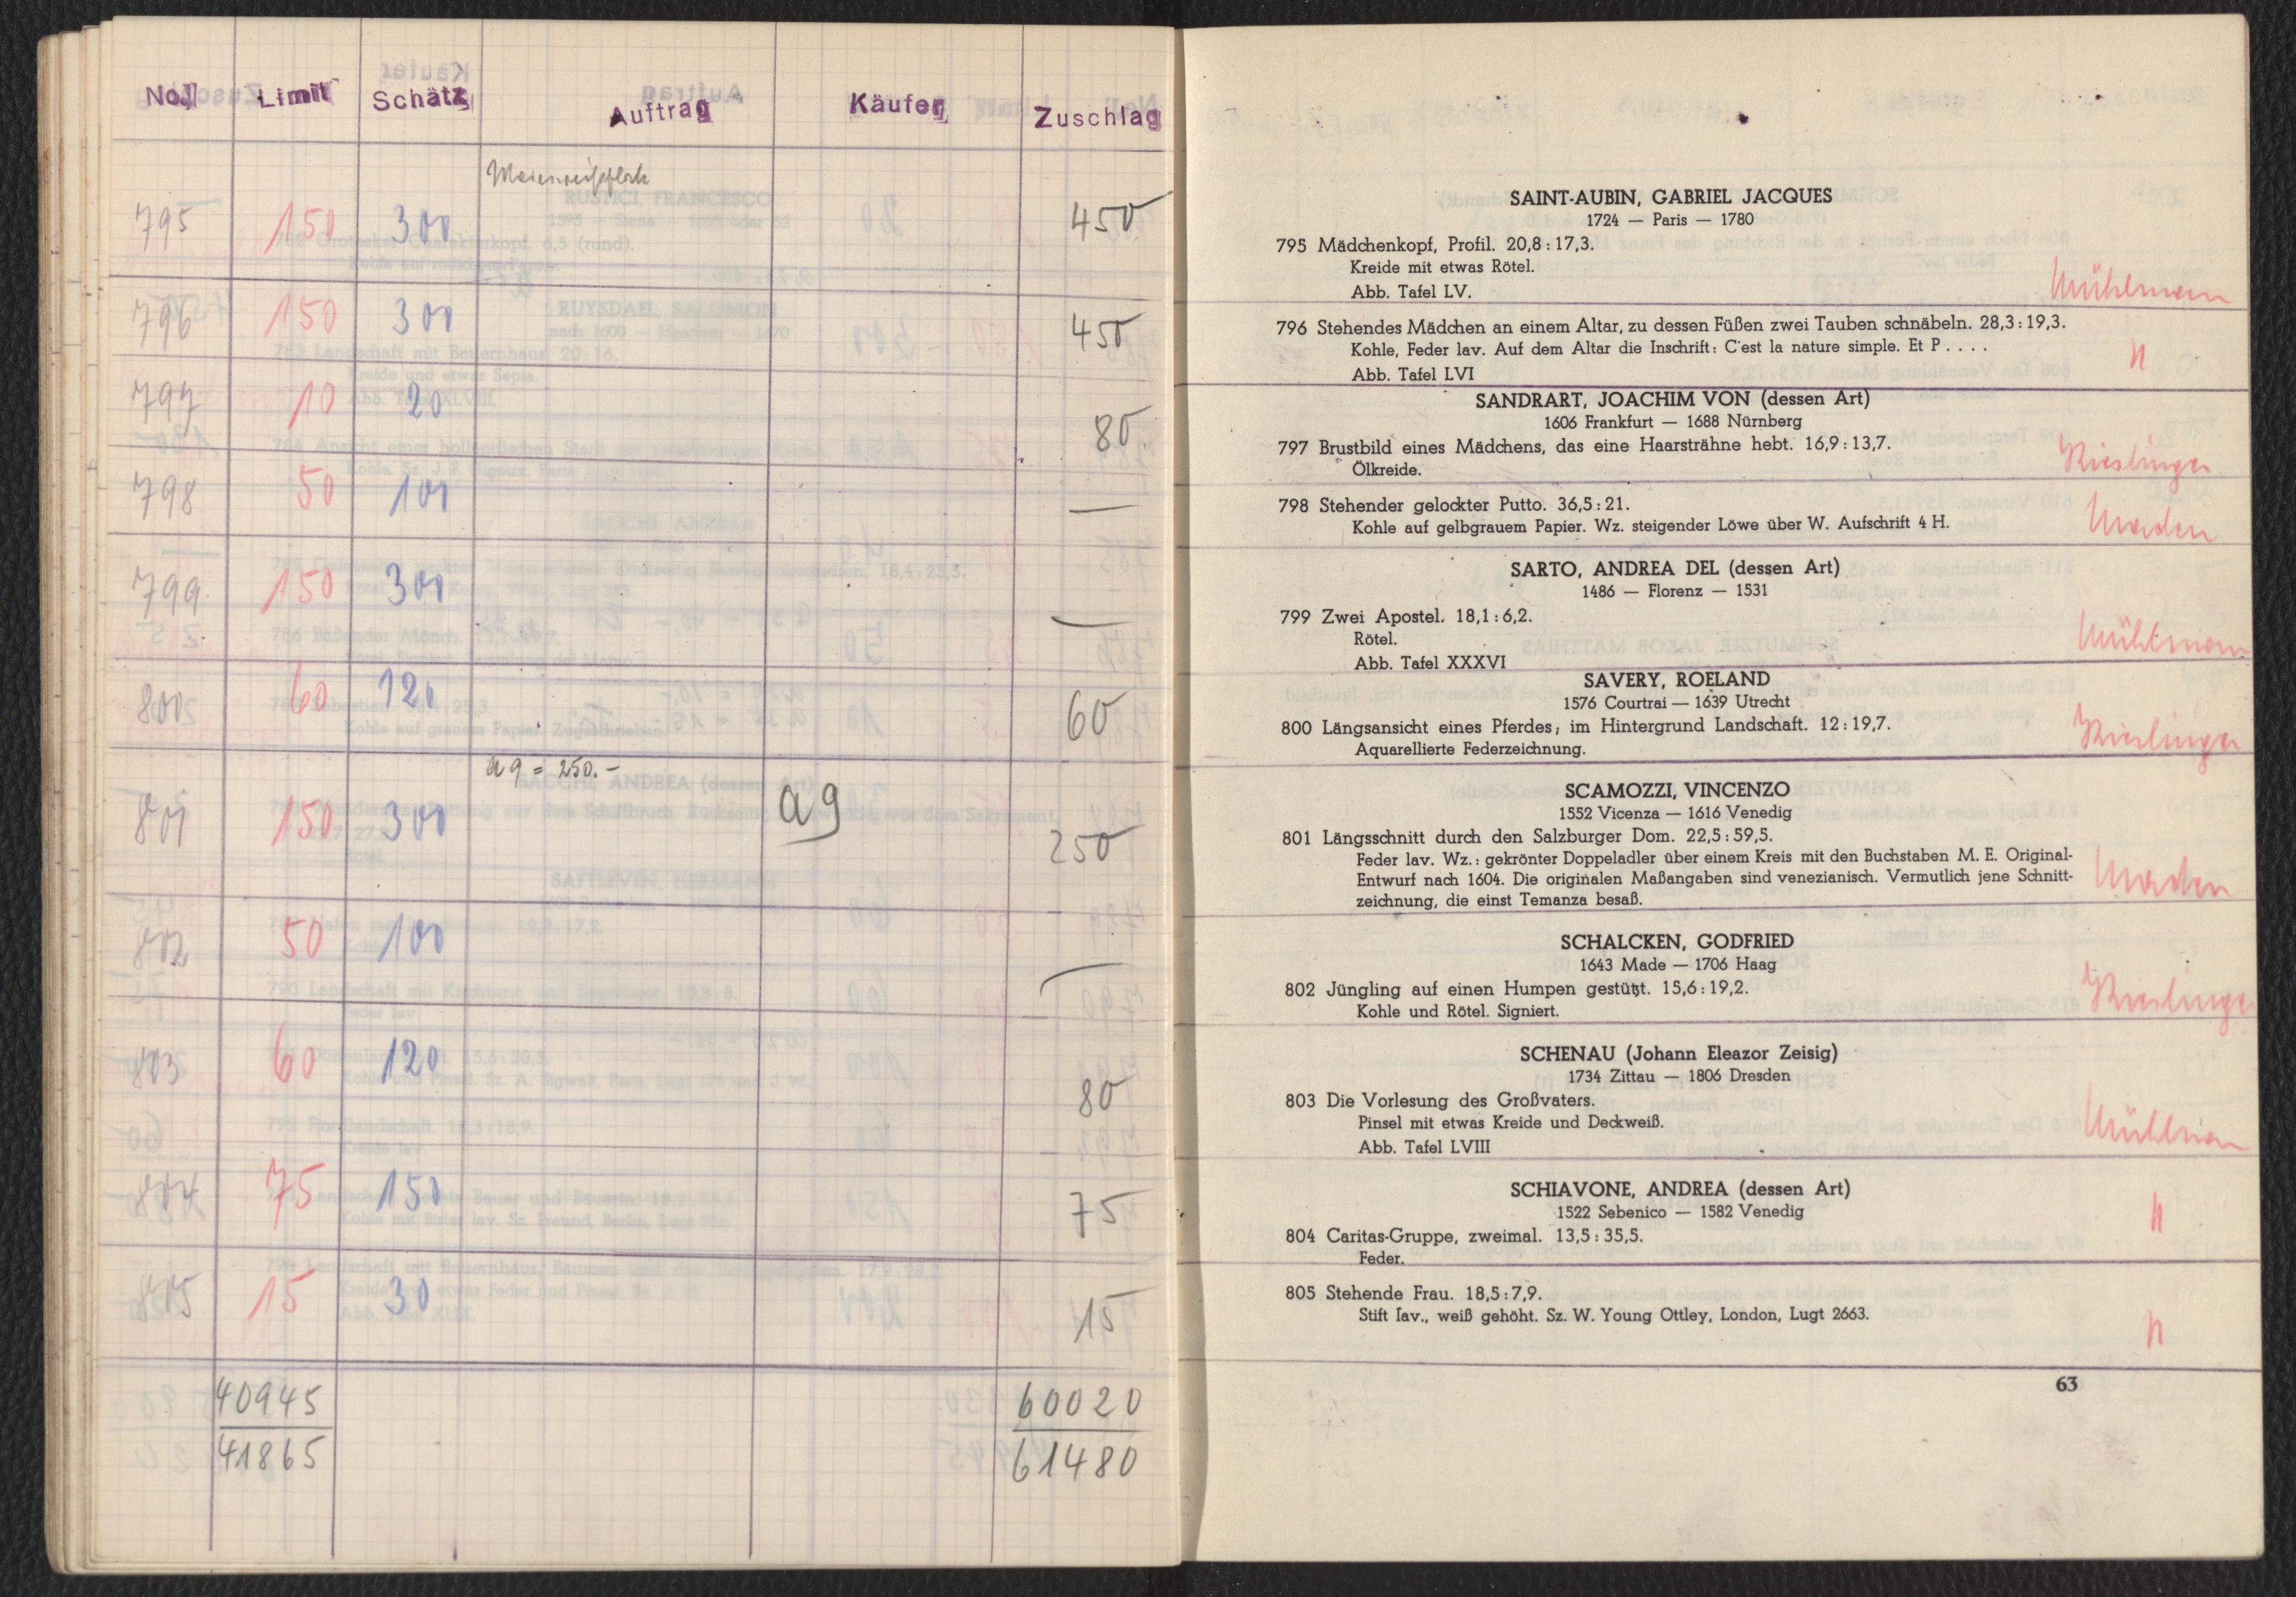 No. Limit Schätz Auftrag Käufer Zuschlag
795 150 300 450
796 150 300 450
797 10 20 80
798 50 100 —
799 150 300 —
800 60 120 60
a9 = 250.-
801 150 300 a9 250
802 50 100 —
803 60 120 80
804 75 150 75
805 15 30 15
40945 60020
41865 61480
SAINT-AUBIN, GABRIEL JACQUES
1724 — Paris — 1780
795 Mädchenkopf, Profil. 20,8 : 17,3.
Kreide mit etwas Rötel.
Abb. Tafel LV.
796 Stehendes Mädchen an einem Altar, zu dessen Füßen zwei Tauben schnäbeln. 28,3 : 19,3.
Kohle, Feder lav. Auf dem Altar die Inschrift: C'est la nature simple. Et P . . . .
Abb. Tafel LVI
SANDRART, JOACHIM VON (dessen Art)
1606 Frankfurt — 1688 Nürnberg
797 Brustbild eines Mädchens, das eine Haarsträhne hebt. 16,9 : 13,7.
Ölkreide.
798 Stehender gelockter Putto. 36,5 : 21.
Kohle auf gelbgrauem Papier. Wz. steigender Löwe über W. Aufschrift 4 H.
SARTO, ANDREA DEL (dessen Art)
1486 — Florenz — 1531
799 Zwei Apostel. 18,1 : 6,2.
Rötel.
Abb. Tafel XXXVI
SAVERY, ROELAND
1576 Courtrai — 1639 Utrecht
800 Längsansicht eines Pferdes; im Hintergrund Landschaft. 12 : 19,7.
Aquarellierte Federzeichnung.
SCAMOZZI, VINCENZO
1552 Vicenza — 1616 Venedig
801 Längsschnitt durch den Salzburger Dom. 22,5 : 59,5.
Feder lav. Wz.: gekrönter Doppeladler über einem Kreis mit den Buchstaben M. E. Original-
Entwurf nach 1604. Die originalen Maßangaben sind venezianisch. Vermutlich jene Schnitt-
zeichnung, die einst Temanza besaß.
SCHALCKEN, GODFRIED
1643 Made — 1706 Haag
802 Jüngling auf einen Humpen gestützt. 15,6 : 19,2.
Kohle und Rötel. Signiert.
SCHENAU (Johann Eleazor Zeisig)
1734 Zittau — 1806 Dresden
803 Die Vorlesung des Großvaters.
Pinsel mit etwas Kreide und Deckweiß.
Abb. Tafel LVIII
SCHIAVONE, ANDREA (dessen Art)
1522 Sebenico — 1582 Venedig
804 Caritas-Gruppe, zweimal. 13,5 : 35,5.
Feder.
805 Stehende Frau. 18,5 : 7,9.
Stift lav., weiß gehöht. Sz. W. Young Ottley, London, Lugt 2663.
63